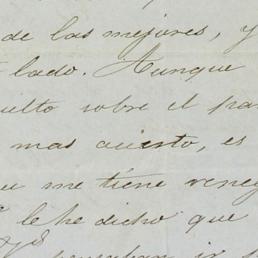 de las mejores, y
lado. Aunque
uelto sobre el pa
mas acierto, es
me tiene reneg
le he dicho que